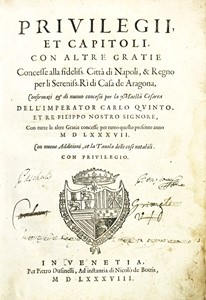 PRIVILEGII,
ET CAPITOLI,
CON ALTRE GRATIE
Concesse alla fideliss. Città di Napoli, & Regno
per li Sereniss. Rì di Casa de Aragona.
Confirmati, & di nuovo concessi per la Maestà Cesarea
DELL'IMPERATOR CARLO QVINTO,
ET RE FILIPPO NOSTRO SIGNORE,
Con tutte le altre Gratie concesse per tutto questo presente anno
M D LXXXVII.
Con nuove Additioni, et la Tavola delle cose notabili.
CON PRIVILEGIO.
IN VENETIA,
Per Pietro Dusinelli, Ad instantia di Nicolò de Bottis,
M D LXXXVIII.